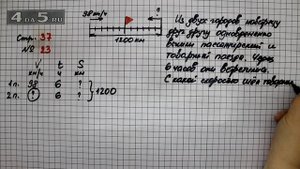 4 DA 5 .RU
Стр. 37
№ 23
38 км/ч
?
1200 км
V t S
км/ч ч км
1 п. 38 6 ?
2 п. ? 6 ?
} 1200
Из двух городов навстречу
друг другу одновременно
вышли пассажирский и
товарный поезда. Через
6 часов они встретились.
С какой скоростью шёл товарный